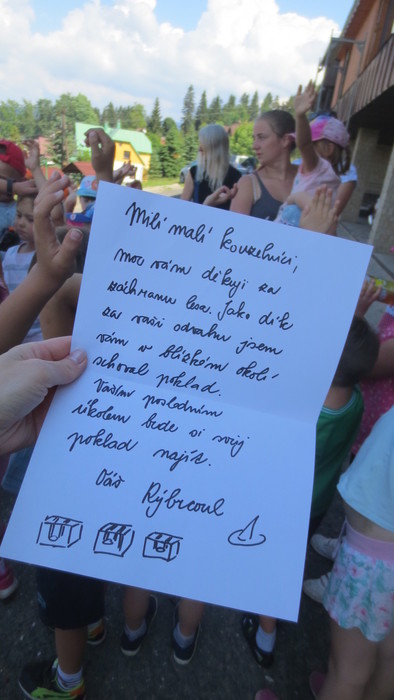 Milí malí kouzelníci,
moc vám děkuji za
záchranu lesa. Jako dík
za vaši odvahu jsem
vám v blízkém okolí
schoval poklad.
Vaším posledním
úkolem bude si svůj
poklad najít.
Váš
Rýbrcoul